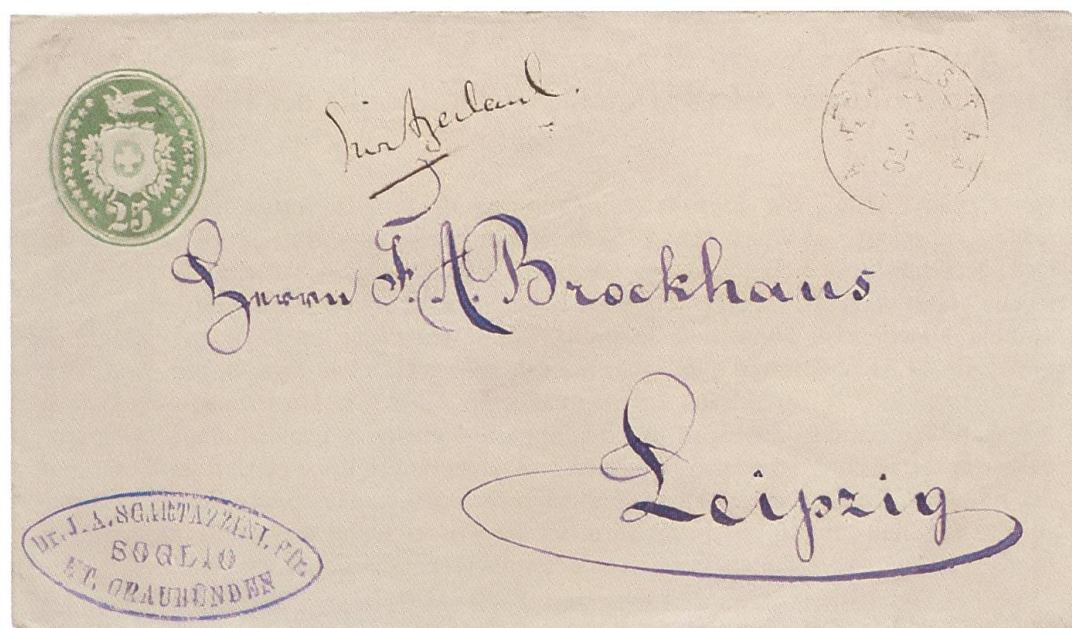 25
Switzerland.
Herrn F. A. Brockhaus
Leipzig
Dr. J. A. SCARTAZZINI, Pfr.
SOGLIO
KT. GRAUBÜNDEN